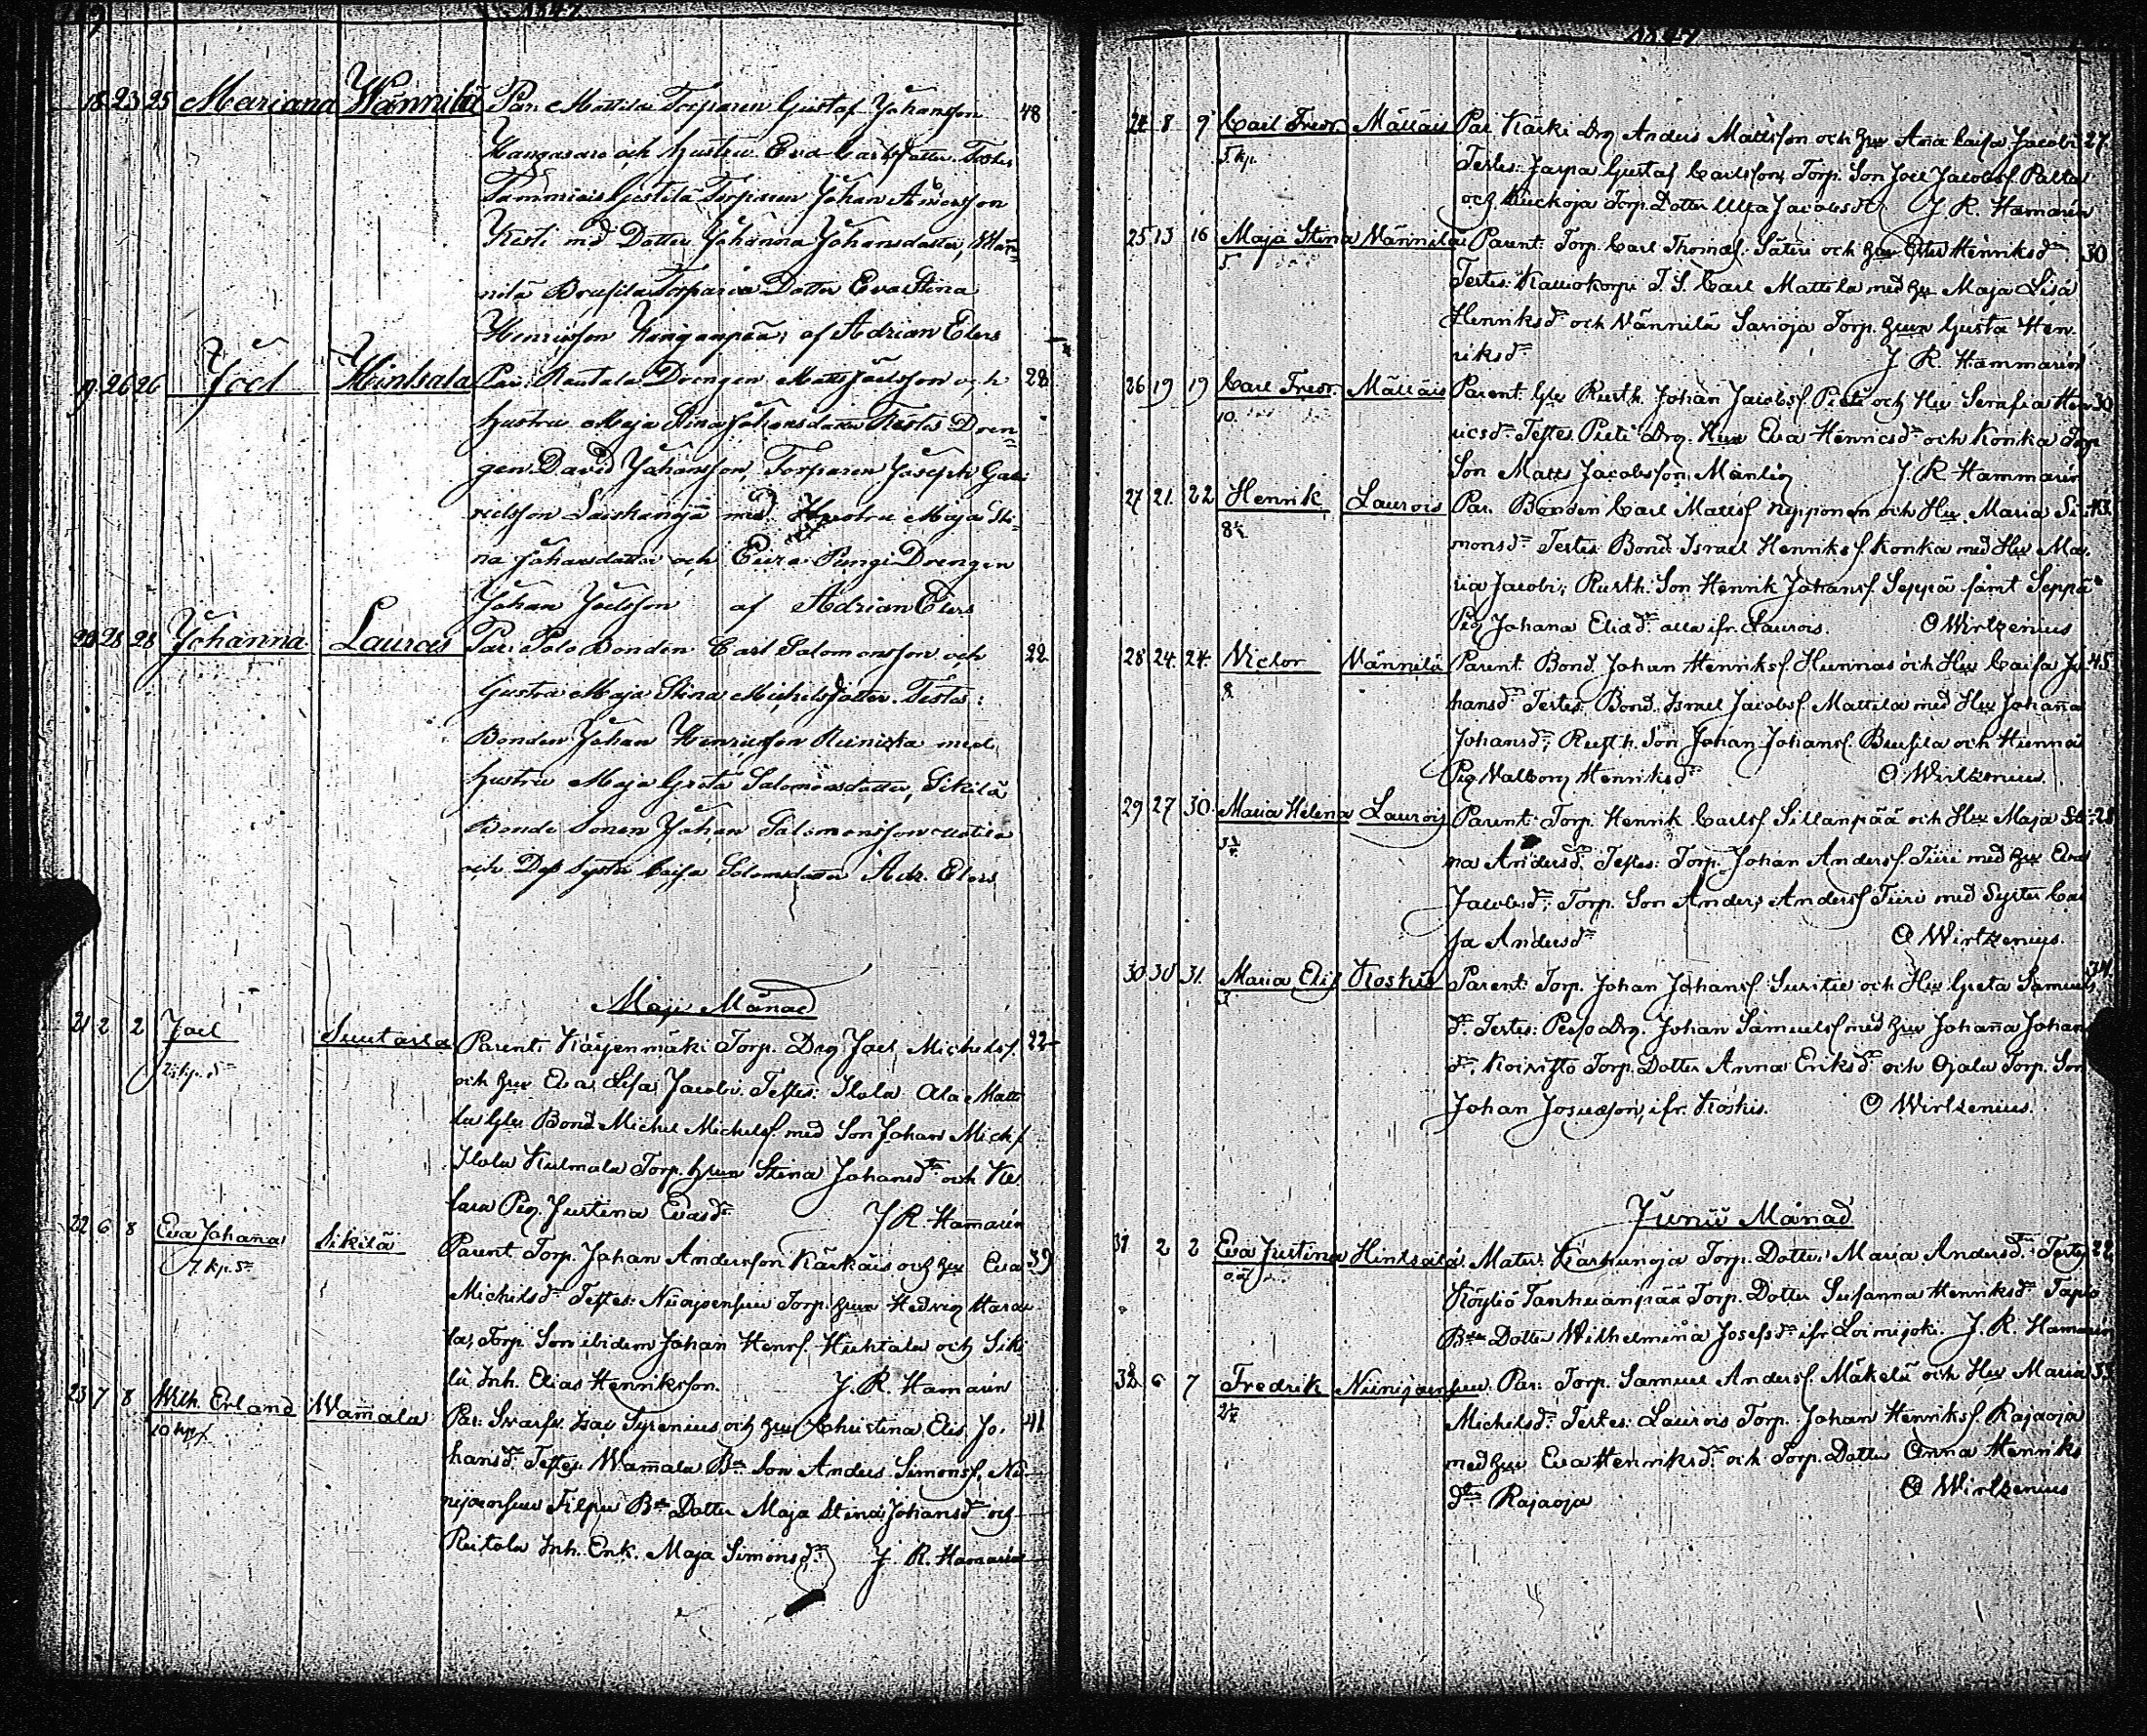 1847
18 23 25 Mariana Wännilä Par: Mattila Torparen Gustaf Johansson 48
Kangasaro och hustru Eva Carlsdotter Testes
Tammiais Gestilä Torparen Johan Andersson
Kesti med Dotter Johanna Johansdotter, Wän-
nilä Brusila Torparens Dotter Eva Stina
Henricsson Kangaspää; af Adrian Elers
19 26 26 Joel Hintsala Par: Rautala Drengen Matts Joelsson och 28
hustru Maja Stina Johansdotter Testes Dren-
gen David Johansson, Torparen Joseph Gab-
rielsson Laishanoja med Hustru Maja Sti-
na Johansdotter och Eura Pungi Drengen
Johan Joelsson af Adrian Elers
20 28 28 Johanna Laurois Par: Polo Bonden Carl Salomonsson och 22
hustru Maja Stina Michelsdotter. Testes:
Bonden Johan Henricsson Reinicka med
hustru Maja Greta Salomonsdotter, Sikilä
Bonde Sonen Johan Salomonsson
och Dess Syster Caisa Salomsdotter Adr. Elers
Maji Månad
21 2 2 Joel Suutarla Parent: Käyenmäki Torp. Drg Joel Michelsf. 22
och hru Eva Lisa Jacobi. Testes: Ilola Ala Matti
la Gle Bond Michel Michelsf. med Son Johan Michf
Ilola Kulmala Torp. hrun Stina Johansdr och Ke
lara Pig. Justina Evasdr. J R. Hamarin
22 6 8 Eva Johana Sikilä Parent. Torp. Johan Andersson Kärkäis och hru Eva 39
7. kp. 5
Michelsdr Testes: Niinijoensuu Torp. hrun Hedvig Harau
la, Torp. Son ibidem Johan Henrs. Huhtala och Siki
lä Inh. Elias Henriksson. J. R. Hamarin
23 7 8 Wilh. Erland Wam̄ala Par: Svarfv. Isac Syrenius och hru Christina Elis. Jo- 41
10 kp
hansdr. Testes. Wam̄ala Bde Son Anders Simonsf. Ni
nijoensuu Filpu Bde Dotter Maja Stina Johansdr och
Reitola Inh. Enk. Maja Simonsdr J R. Hamarin
1847
24 8 9 Carl Fredr. Mälläis Par Käcki Drg Anders Mattsson och hru Ana Caisa Jacobi 27.
5 kp.
Testes: Jaspa Gustaf Carlsson, Torp. Son Joel Jacobsf. Palta
och Kuckoja Torp. Dotter Ulla Jacobsdr J R. Hamarin
25 13 16 Maja Stina Vännilä Parent: Torp. Carl Thomasf. Säteri och hru Ester Henriksdr. 30
5.
Testes: Kalliokorpi T. S. Carl Mattila med hr Maja Lisa
Henriksdr och Vännilä Sarioja Torp. hrun Gusta Hen-
riksdr J R. Hammarin
26 19 19 Carl Fredr. Mälläis Parent: Gle Rusth. Johan Jacobsf. Pieti och Hu Serafia Hen 30
10.
ricsdr. Testes. Pieti Drg. Hun Eva Henricsdr och Konka Torp
Son Matts Jacobsson, Mänlig J. R Hammarin
27 21. 22 Henrik Laurois Par. Bonden Carl Mattsf. Nypponen och Hu. Maria Si 43.
monsdr Testes. Bond. Israel Henriksf Konka med Hu Ma-
ria Jacobi; Rusth. Son Henrik Johansf. Seppä samt Seppä
Pig Johana Eliædr. alla ifr. Laurois. O Wirtzenius
28 24. 24. Victor Vännilä Parent. Bond. Johan Henriksf. Hunnas och Hu Caisa Jo 45.
8
hansdr. Testes. Bond. Israel Jacobsf Mattila med Hu Johana
Johansdr; Rusth. Son Johan Johansf. Brusila och Hunnas
Pig Valborg Henriksdr O Wirtzenius
29 27 30. Maria Helena Laurois Parent: Torp. Henrik Carlsf. Sillanpää och Hu Maja Sti- 28
na Andersdr. Testes: Torp. Johan Andersf. Tiiri med hru Eva
Jacobsdr; Torp. Son Anders Andersf Tiiri med Syster Cai
sa Andersdr O Wirtzenius.
30 30 31. Maria Elis Koskis Parent: Torp. Johan Johansf. Suritie och Hu Greta Samuels 34.
dr. Testes: Peso Drg. Johan Samuelsf med hru Johana Johans
dr, Koivisto Torp. Dotter Anna Eriksdr och Ojala Torp. Son
Johan Josuæson, ifr. Koskis. O Wirtzenius.
Junii Månad
31 2 2 Eva Justina Hintsala Mater: Karhunoja Torp. Dotter Maria Andersdr. Testes 22
o.ä.
Köyliö Tanhuanpää Torp. Dotter Susanna Henriksdr Tapio
Bde Dotter Wilhelmina Josefsdr ifr Loimijoki. J. R. Hamarin
32 6 7 Fredrik Niinijoensuu. Par: Torp. Samuel Andersf. Mäkelä och Hu Maria 33
Michelsdr. Testes: Laurois Torp. Johan Henriksf Rajaoja
med hru Eva Henriksdr. och Torp. Dotter Anna Henriks
dr Rajaoja O Wirtzenius